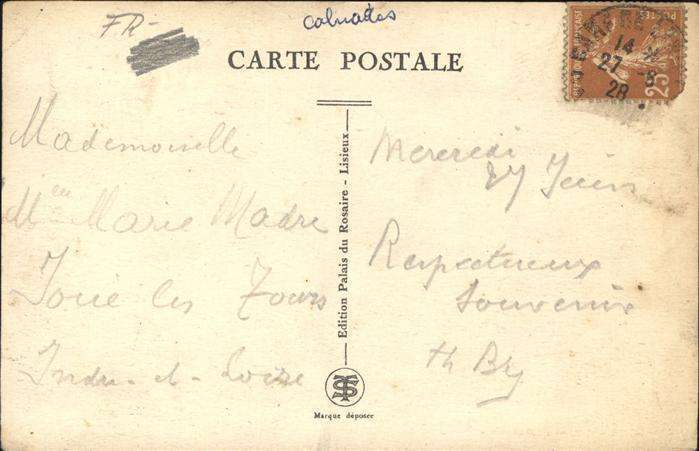 FR-
Calvados
CARTE POSTALE
14
27 -6
28
25
Mademoiselle
Marie Madre
Joué les Tours
Indre-et-Loire
Edition Palais du Rosaire - Lisieux
Marque déposée
Mercredi
27 Juin
Respectueux
Souvenir
th Bry